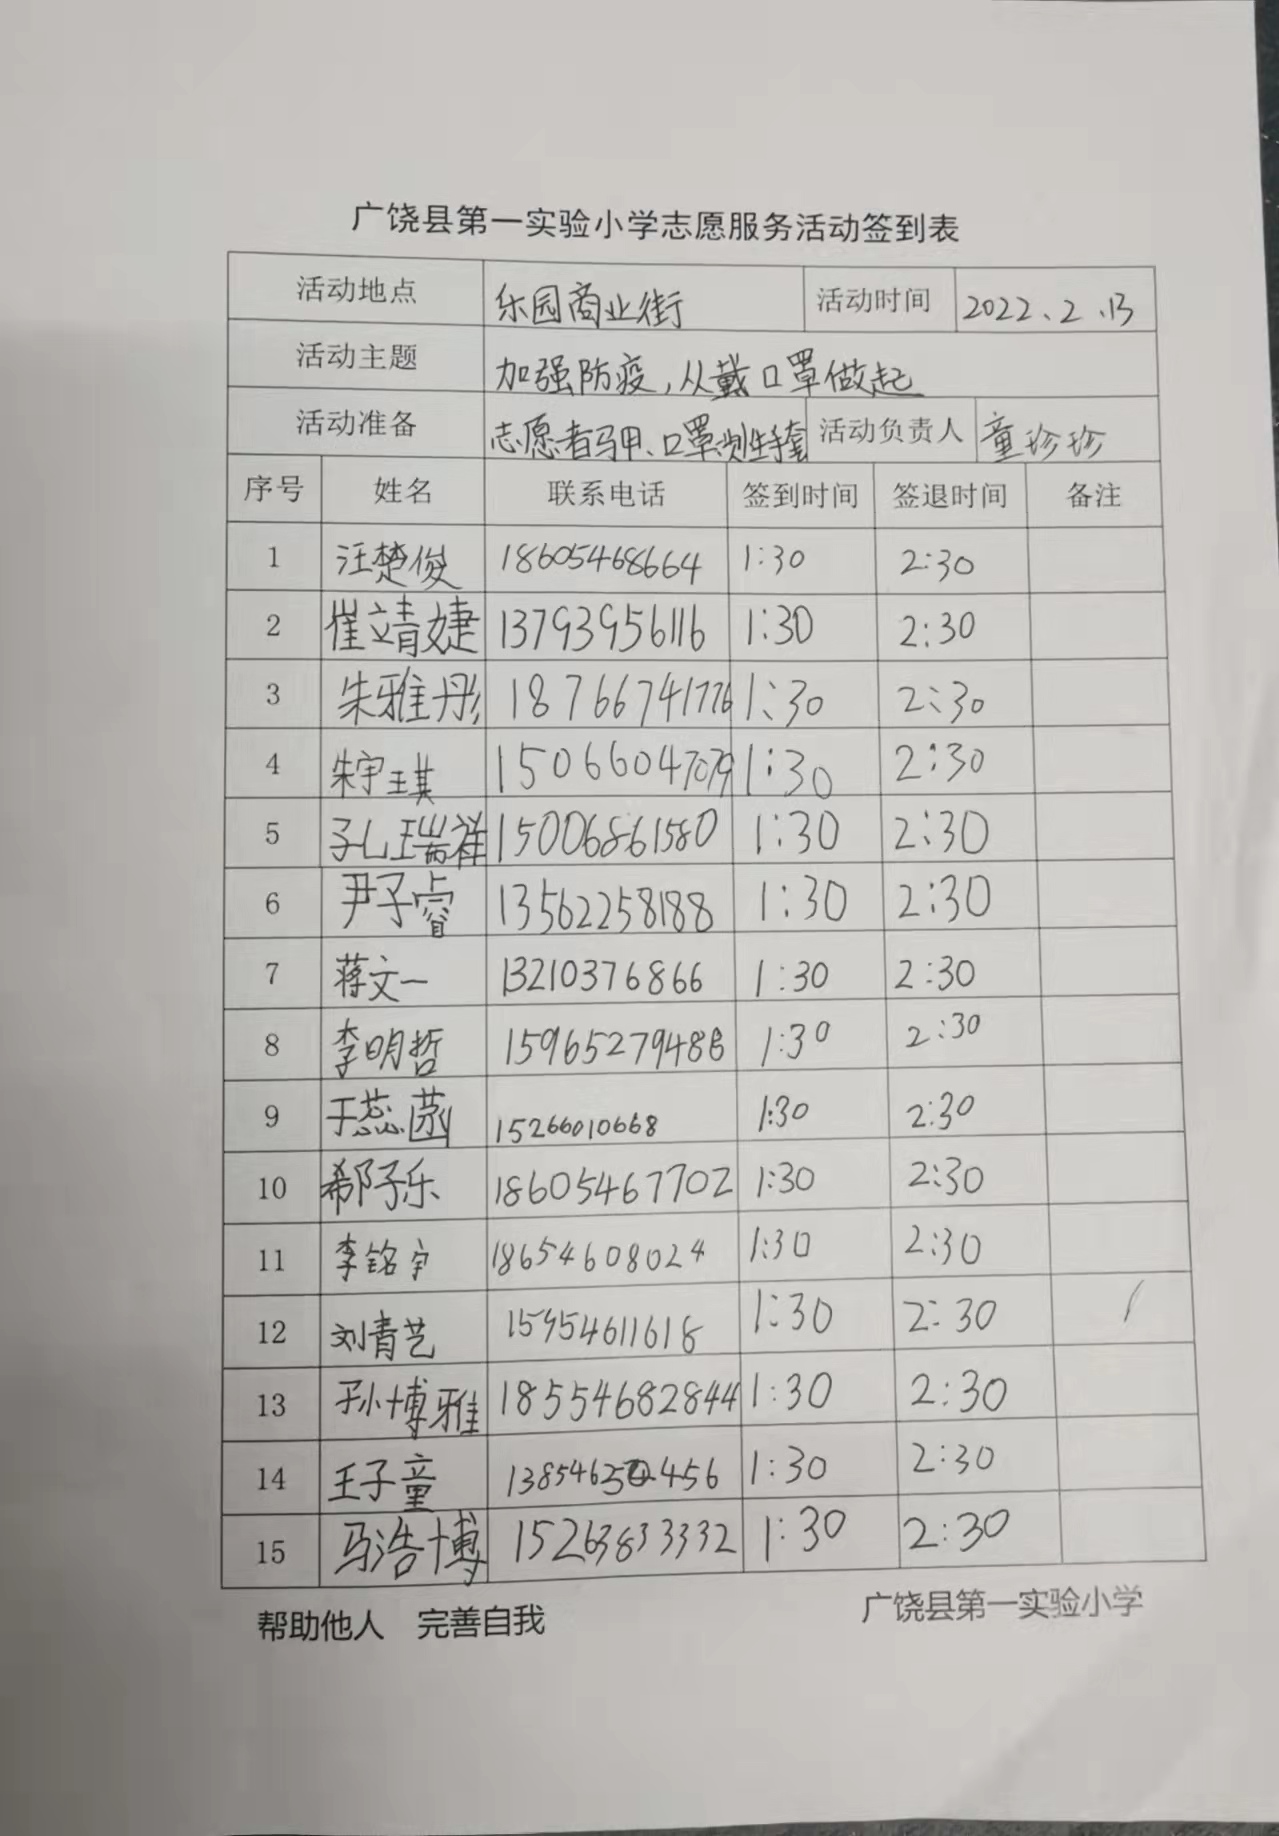 广饶县第一实验小学志愿服务活动签到表
活动地点 乐园商业街 活动时间 2022、2、13
活动主题 加强防疫,从戴口罩做起
活动准备 志愿者马甲、口罩、 手套 活动负责人 童珍珍
序号 姓名 联系电话 签到时间 签退时间 备注
1 汪楚俊 18605468664 1:30 2:30
2 崔靖婕 13793956116 1:30 2:30
3 朱雅彤 18766741776 1:30 2:30
4 朱宇琪 15066047079 1:30 2:30
5 孔瑞祥 15006861580 1:30 2:30
6 尹子睿 13562258188 1:30 2:30
7 蒋文一 13210376866 1:30 2:30
8 李明哲 15965279488 1:30 2:30
9 于蕊菡 15266010668 1:30 2:30
10 郗子乐 18605467702 1:30 2:30
11 李铭宇 18654608024 1:30 2:30
12 刘青艺 15954611618 1:30 2:30
13 孙博雅 18554682844 1:30 2:30
14 王子童 1:30 2:30
15 马浩博 15263833332 1:30 2:30
帮助他人 完善自我 广饶县第一实验小学